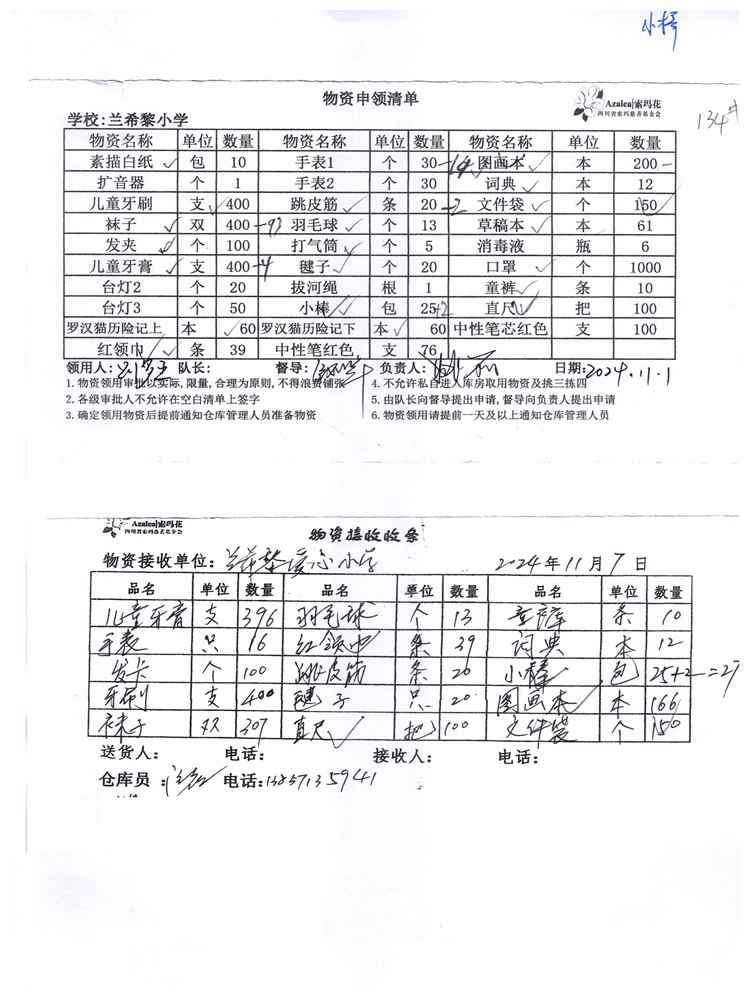 小棒
物资申领清单
Azalea|索玛花
四川省索玛慈善基金会
134件
学校:兰希黎小学
物资名称 单位 数量 物资名称 单位 数量 物资名称 单位 数量
素描白纸 ✓ 包 10 手表1 个 30 -14 图画本 ✓ 本 200 -
扩音器 个 1 手表2 个 30 词典 ✓ 本 12
儿童牙刷 支 ✓ 400 跳皮筋 ✓ 条 20 -2 文件袋 ✓ 个 150
袜子 ✓ 双 400 -93 羽毛球 ✓ 个 13 草稿本 ✓ 本 61
发夹 ✓ 个 100 打气筒 ✓ 个 5 消毒液 瓶 6
儿童牙膏 ✓ 支 400 -4 毽子 ✓ 个 20 口罩 ✓ 个 1000
台灯2 个 20 拔河绳 根 1 童裤 ✓ 条 10
台灯3 个 50 小棒 ✓ 包 25+2 直尺 ✓ 把 100
罗汉猫历险记上 本 ✓ 60 罗汉猫历险记下 本 ✓ 60 中性笔芯红色 支 100
红领巾 ✓ 条 39 中性笔红色 支 76
领用人: 队长: 督导: 负责人: 日期: 2024.11.1
1. 物资领用审批以实际, 限量, 合理为原则, 不得浪费铺张 4. 不允许私自进入库房取用物资及挑三拣四
2. 各级审批人不允许在空白清单上签字 5. 由队长向督导提出申请, 督导向负责人提出申请
3. 确定领用物资后提前通知仓库管理人员准备物资 6. 物资领用请提前一天及以上通知仓库管理人员
Azalea|索玛花
四川省索玛慈善基金会
物资接收收条
物资接收单位: 兰希黎爱心小学 2024年11月7日
品名 单位 数量 品名 单位 数量 品名 单位 数量
儿童牙膏 支 396 羽毛球 个 13 童裤 条 10
手表 只 16 红领巾 条 39 词典 本 12
发卡 个 100 跳皮筋 条 20 小棒 包 25+2=27
牙刷 支 400 毽子 只 20 图画本 ✓ 本 166
袜子 双 307 直尺 ✓ 把 100 文件袋 个 150
送货人: 电话: 接收人: 电话:
仓库员: 电话: 1357135941